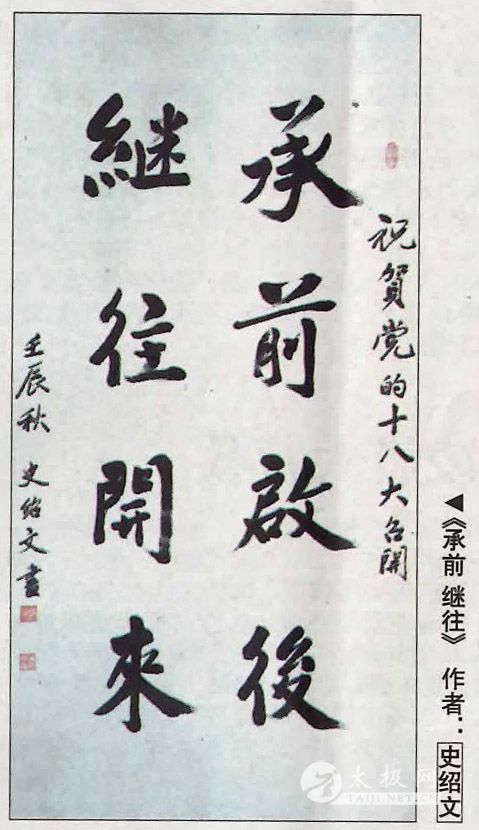 祝贺党的十八大召開
承前啟後
継往開來
壬辰秋 史紹文書
◀《承前 继往》 作者：史绍文
太极网
TAIJI.NET.CN